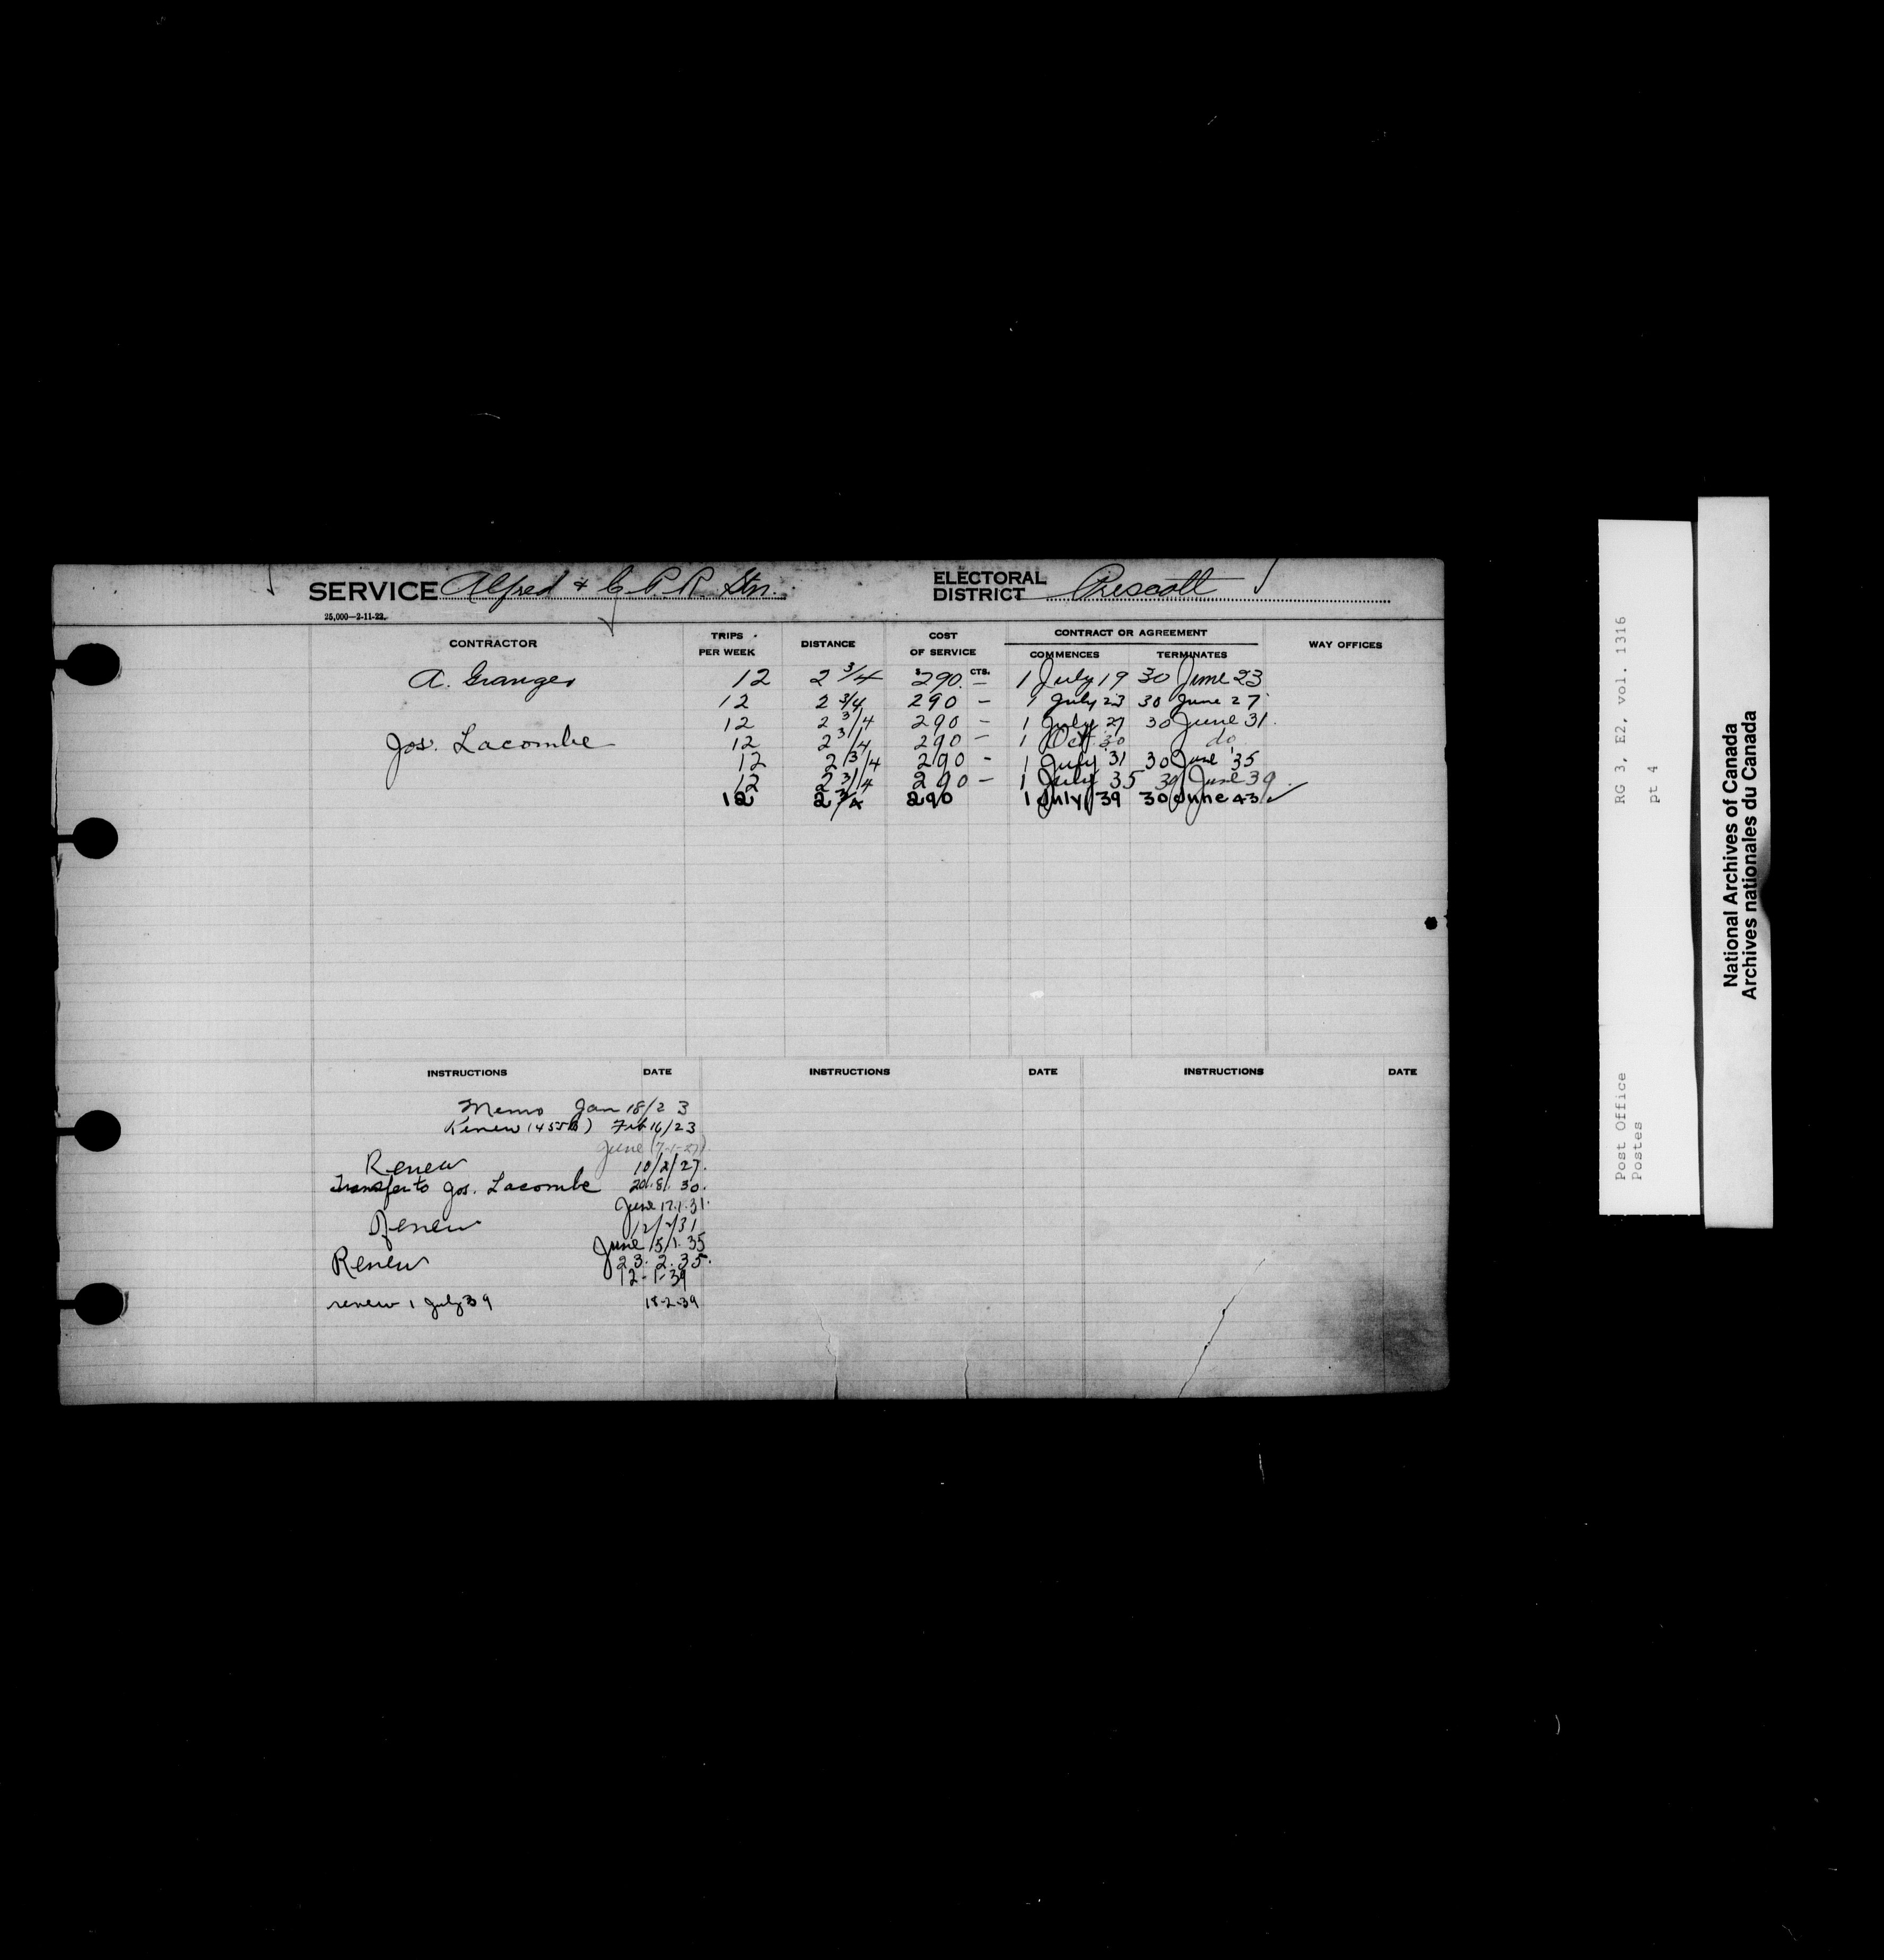 SERVICE Alfred & C.P.R. Stn. ELECTORAL DISTRICT Prescott
25,000—2-11-22.
CONTRACTOR TRIPS PER WEEK DISTANCE COST OF SERVICE CONTRACT OR AGREEMENT COMMENCES TERMINATES WAY OFFICES
$ CTS.
A. Granger 12 2 3/4 290. — 1 July 19 30 June 23
12 2 3/4 290 — 1 July 23 30 June 27
12 2 3/4 290 — 1 July 27 30 June 31.
Jos. Lacombe 12 2 3/4 290 — 1 Oct 30 do
12 2 3/4 290 - 1 July '31 30 June '35
12 2 3/4 290 — 1 July 35 30 June 39.
12 2 3/4 290 1 July 39 30 June 43 ✓
INSTRUCTIONS DATE INSTRUCTIONS DATE INSTRUCTIONS DATE
Memo Jan 18/23
Renew (455B) Feb 16/23
June (7-1-27)
Renew 10/2/27.
Transfer to Jos. Lacombe 20.8. 30.
June 17.1.31.
Renew 12/2/31
June 15/1.35
Renew 23.2.35.
12-1-39
renew 1 July 39 18-2-39
Post Office RG 3, E2, vol. 1316
Postes pt 4
National Archives of Canada
Archives nationales du Canada